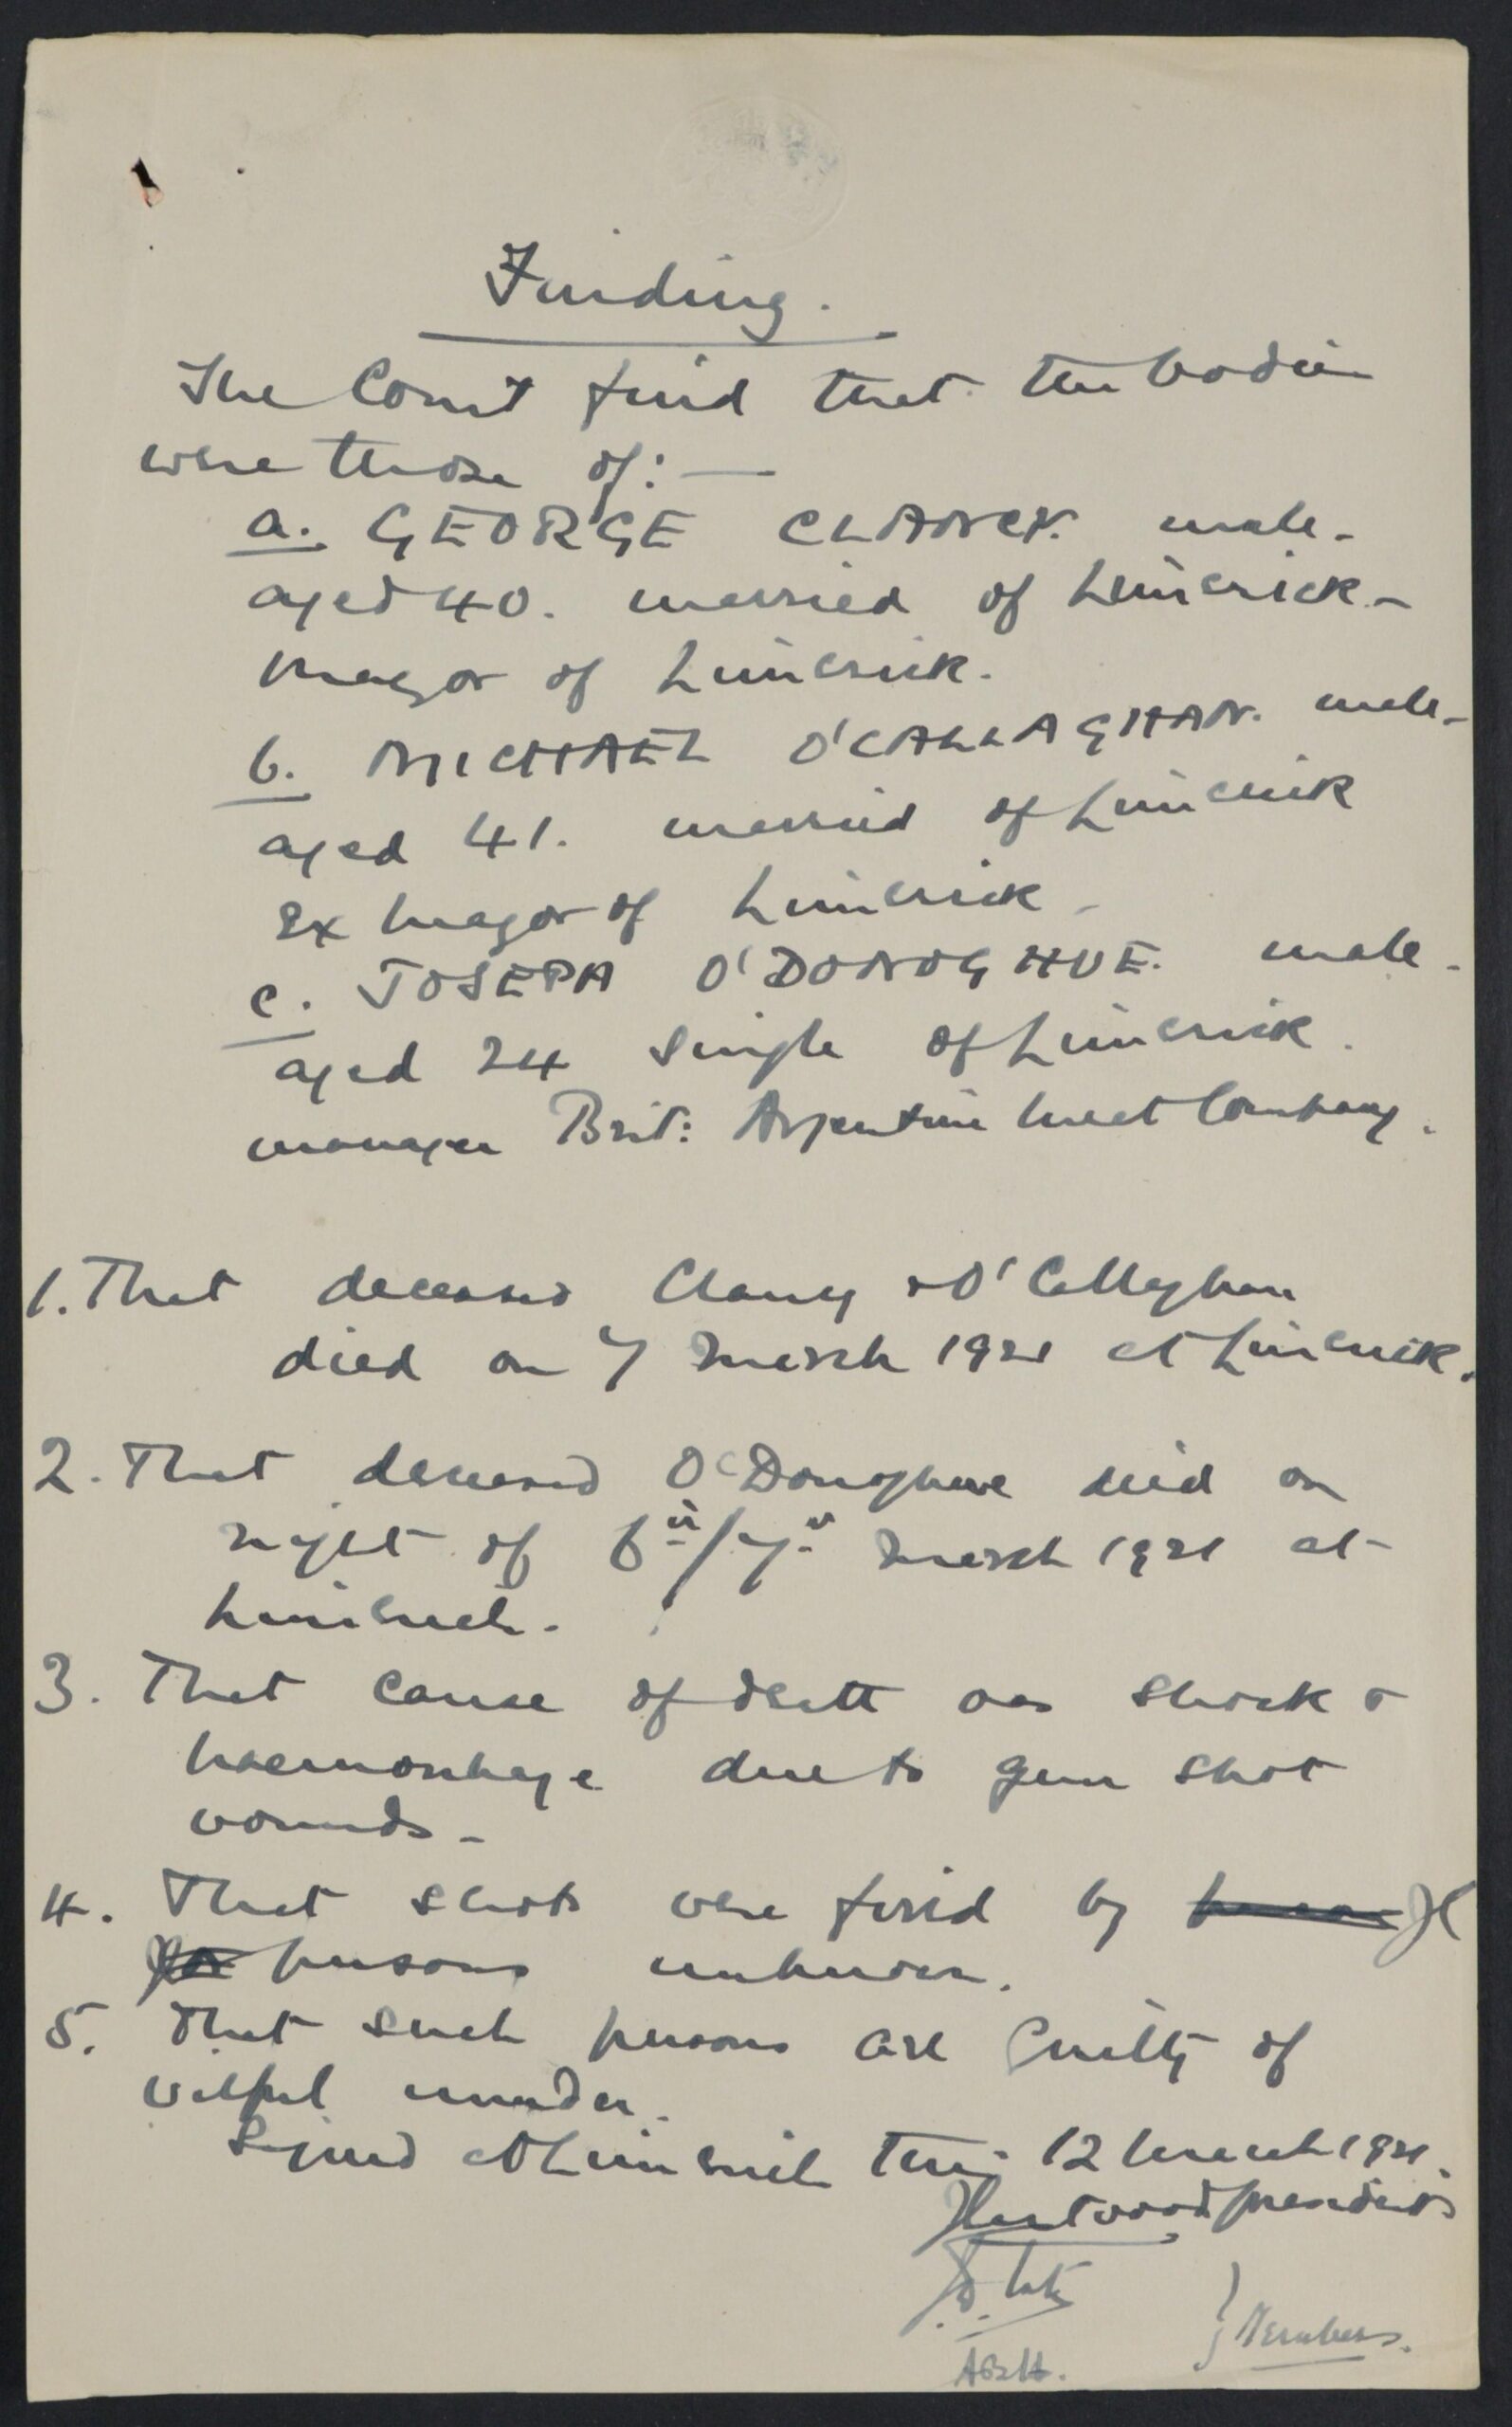 Finding.
The Court find that the bodies
were those of: —
a. GEORGE CLANCY. male -
aged 40. married of Limerick -
Mayor of Limerick.
b. MICHAEL O'CALLAGHAN. male -
aged 41. married of Limerick
Ex Mayor of Limerick -
c. JOSEPH O'DONOGHUE. male -
aged 24 single of Limerick.
manager Brit: Argentine Meat Company.
1. That deceased Clancy & O'Callaghan
died on 7 March 1921 at Limerick.
2. That deceased O'Donoghue died on
night of 6th/7th March 1921 at
Limerick.
3. That cause of death was shock &
haemorrhage due to gun shot
wounds -
4. That shots were fired by
persons unknown.
5. That such persons are guilty of
wilful murder.
Signed at Limerick this 12 March 1921.
President
} Members.